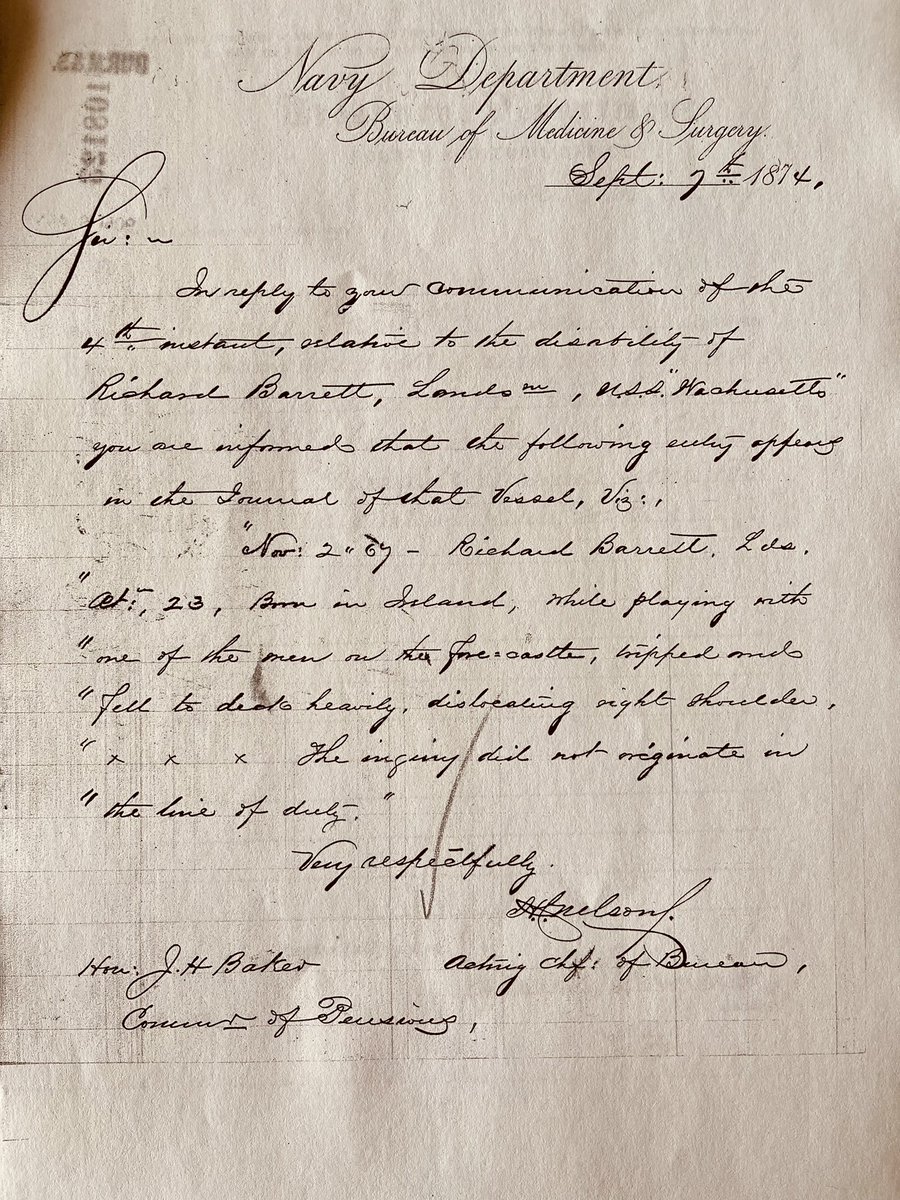 Navy Department.
Bureau of Medicine & Surgery.
Sept: 7th 1874.
Sir:
In reply to your communication of the
4th instant, relative to the disability of
Richard Barrett, Landsm, U.S.S. "Wachusetts"
you are informed that the following entry appears
in the Journal of that Vessel, Viz:,
"Nov: 2" 67 - Richard Barrett. Lds.
" Aet:, 23, Born in Island, while playing with
" one of the men on the Fore-castle, tripped and
" fell to deck heavily, dislocating right shoulder,
" x x x The injury did not originate in
" the line of duty."
Very respectfully.
H.C. Nelson,
Hon: J.H Baker Acting Chf: of Bureau,
Commr of Pensions,